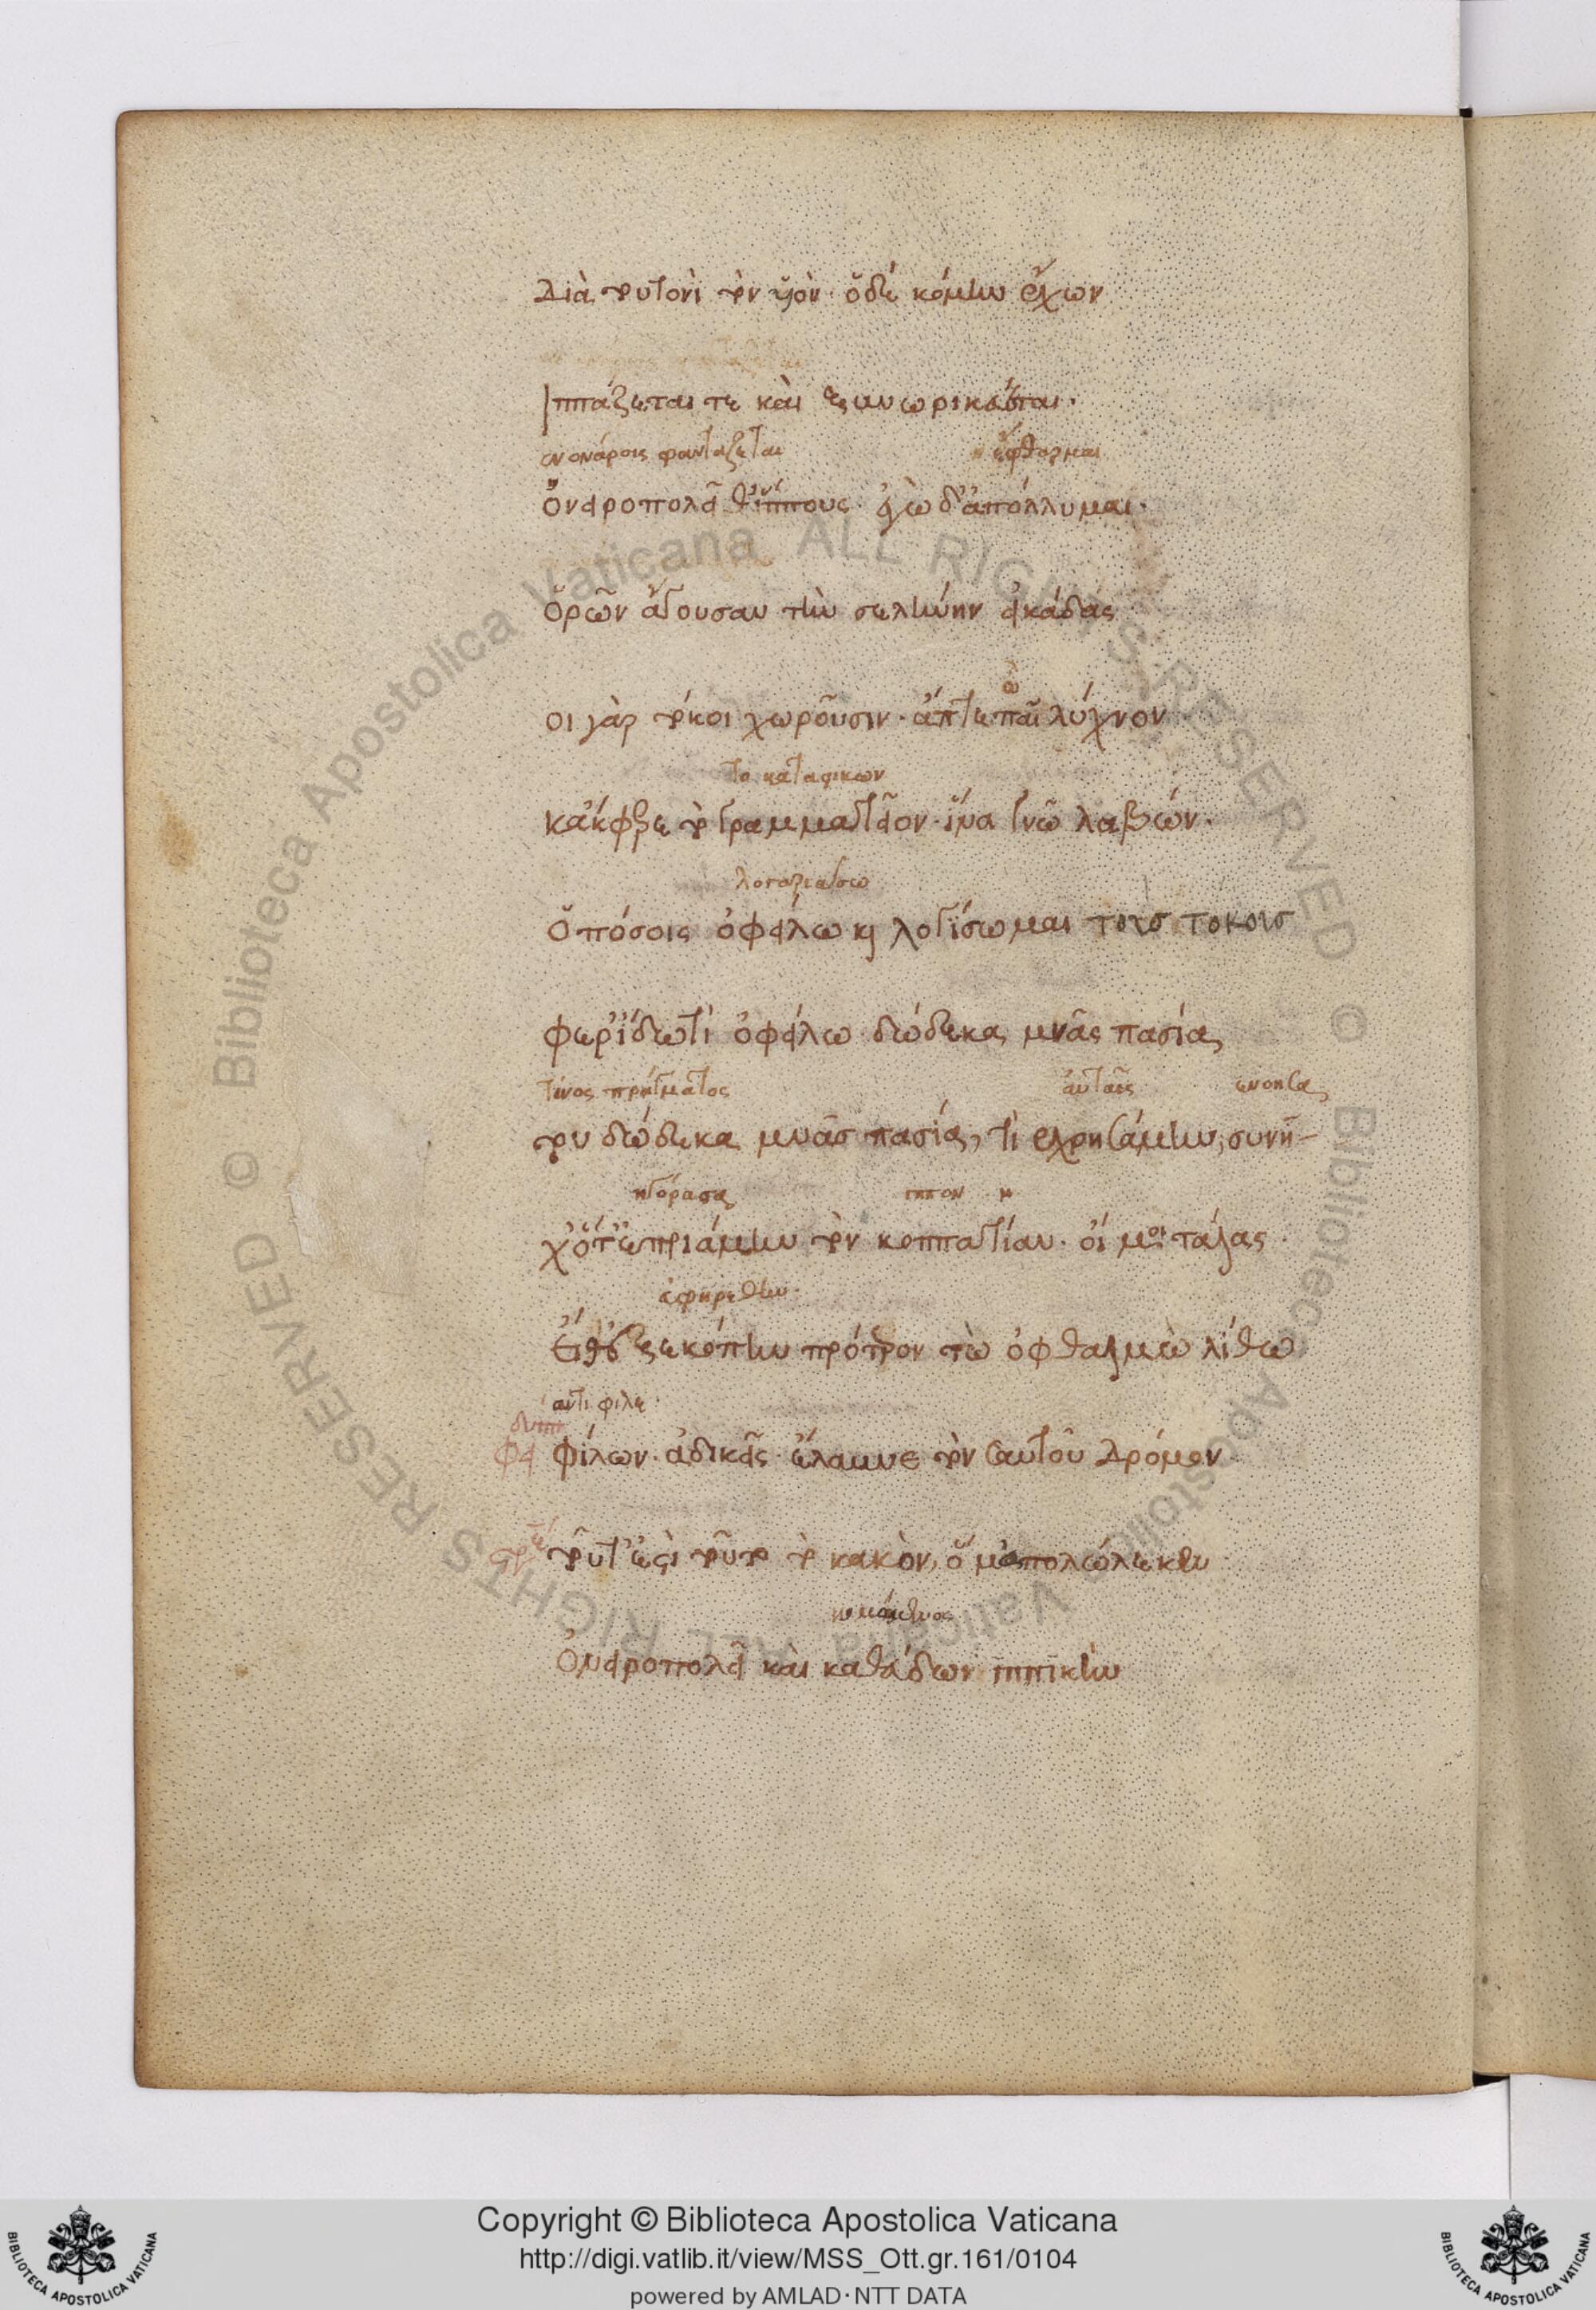 Διὰ τουτονὶ τὸν ὑὸν· ὃδὲ κόμην ἔχων
ἱππάζεταί τε καὶ ξυνωρικεύεται·
ἐν ὀνείροις φαντάζεται ἔφθαρμαι
ὀνειροπολεῖ θ' ἵππους· ἐγὼ δ' ἀπόλλυμαι·
ὁρῶν ἄγουσαν τὴν σελήνην εἰκάδας
οἱ γὰρ τόκοι χωροῦσιν· ἅπτε παῖ λύχνον
κἄκφερε τὸ γραμματεῖον· ἵνα γνῶ λαβών·
λογαριάσω
ὁπόσοις ὀφείλω καὶ λογίσωμαι τοὺσ τοκουσ
φέρ' ἴδω τί ὀφείλω δώδεκα μνᾶς πασία
τίνος πράγματος αὐταῖς ἐνόησα
τοῦ δώδεκα μνᾶσ πασία, τί ἐχρησάμην, συνῆ-
ἠγόρασα ἵππον
χ' ὅτ' ἐπριάμην τὸν κοππατίαν· οἴ μοι τάλας·
ἀφῃρέθην·
Εἴθ' ἐξεκόπην πρότερον τὼ ὀφθαλμὼ λίθω
ἀντὶ φίλε·
φει φίλων· ἀδικεῖς· ἔλαυνε τὸν σαυτοῦ Δρόμον
στρεψ τοῦτ' ἐστὶ τοῦτο τὸ κακὸν, ὅ μ' ἀπολώλεκεν
κοιμώμενος
Ὀνειροπολεῖ καὶ καθεύδων ἱππικήν
Copyright © Biblioteca Apostolica Vaticana
http://digi.vatlib.it/view/MSS_Ott.gr.161/0104
powered by AMLAD · NTT DATA
BIBLIOTECA APOSTOLICA VATICANA
BIBLIOTECA APOSTOLICA VATICANA
© Biblioteca Apostolica Vaticana ALL RIGHTS RESERVED © Biblioteca Apostolica Vaticana ALL RIGHTS RESERVED